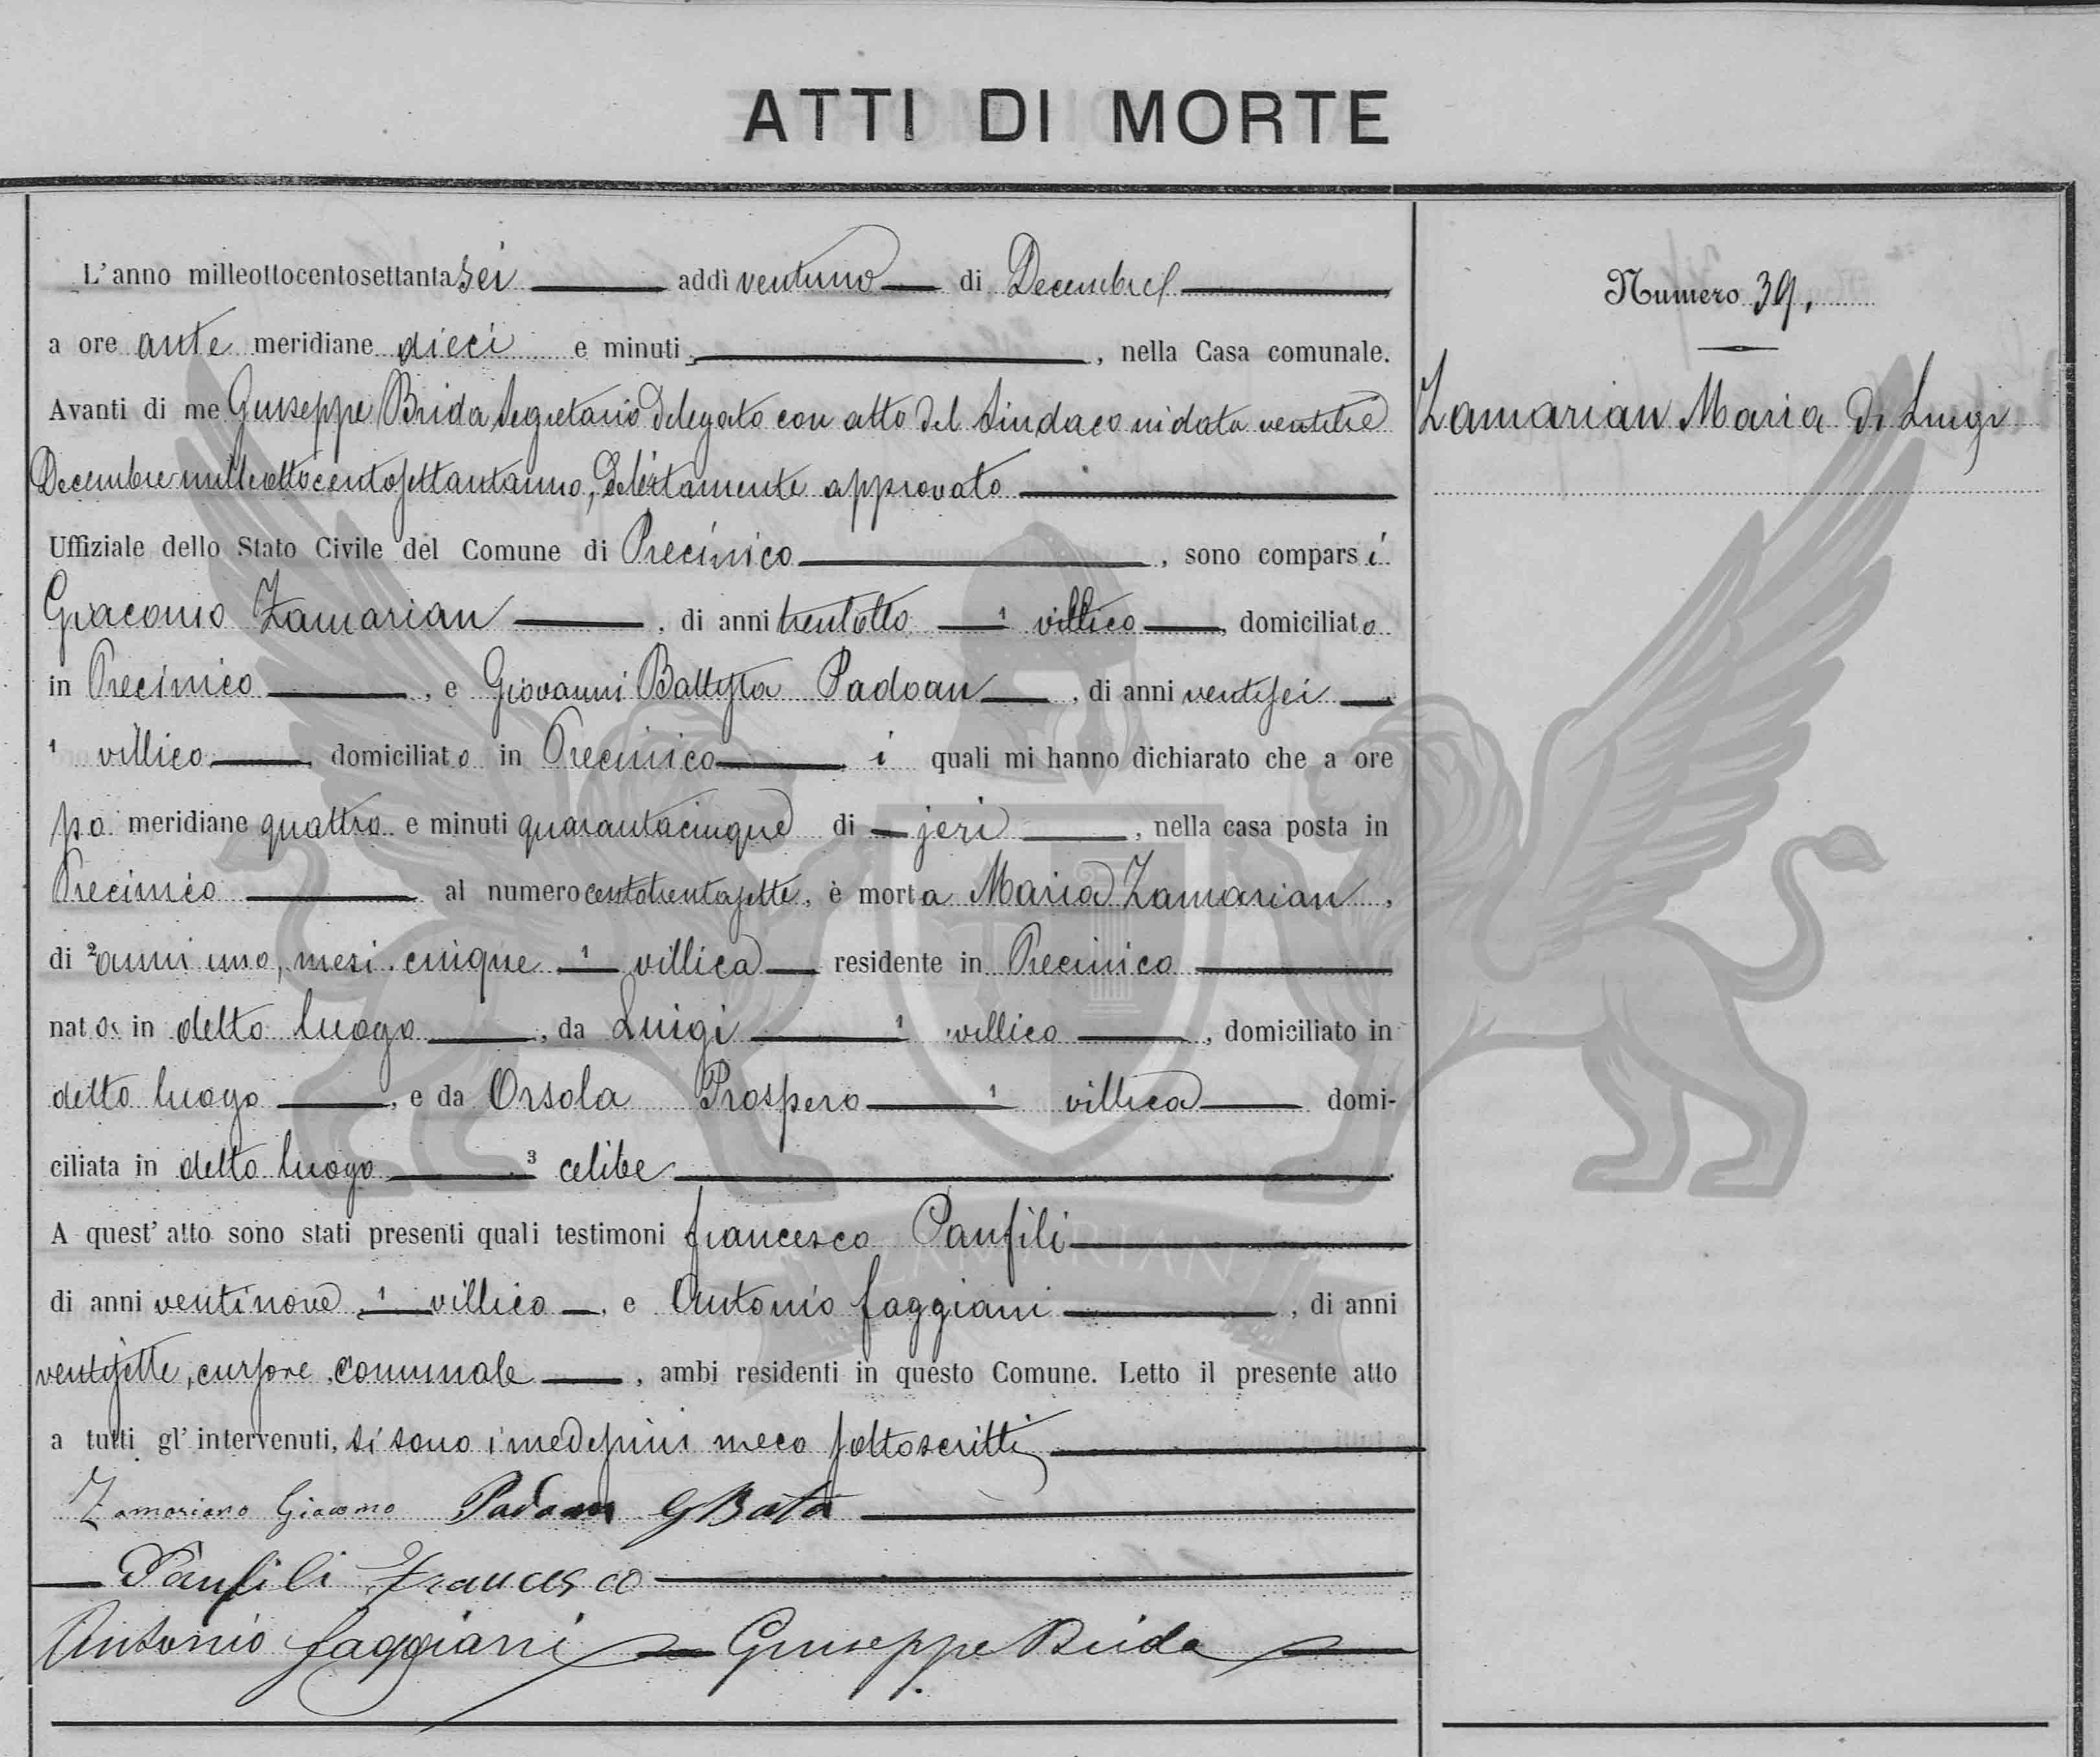 ATTI DI MORTE
L'anno milleottocentosettantasei addì ventuno di Decembre
a ore ante meridiane dieci e minuti , nella Casa comunale.
Avanti di me Giuseppe Brida Segretario delegato con atto del Sindaco in data ventitré
Decembre milleottocentosettantauno, debitamente approvato
Uffiziale dello Stato Civile del Comune di Precinico , sono comparsi
Giacomo Zamarian , di anni trentotto 1 villico , domiciliato
in Precinico , e Giovanni Battista Padoan , di anni ventisei ,
1 villico , domiciliato in Precinico , i quali mi hanno dichiarato che a ore
po meridiane quattro e minuti quarantacinque di jeri , nella casa posta in
Precinico al numero centotrentasette, è morta Maria Zamarian ,
di 2 anni uno, mesi cinque 1 villica residente in Precinico
nata in detto luogo , da Luigi 1 villico , domiciliato in
detto luogo , e da Orsola Prospero 1 villica domi-
ciliata in detto luogo . 3 celibe .
A quest' atto sono stati presenti quali testimoni Francesco Panfili
di anni ventinove , 1 villico , e Antonio Faggiani , di anni
ventisette, cursore comunale , ambi residenti in questo Comune. Letto il presente atto
a tutti gl' intervenuti, si sono i medesimi meco sottoscritti
Zamariano Giacomo Padoan G Bata
Panfili Francesco
Antonio Faggiani Giuseppe Brida
Numero 39.
Zamarian Maria di Luigi
ZAMARIAN